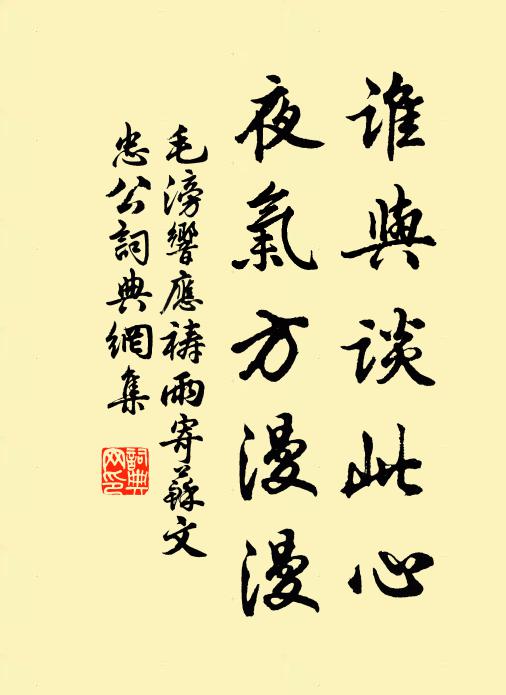 誰與談此心
夜氣方漫漫
毛滂響應禱雨寄蘇文
忠公詞典網集
詞典
网印